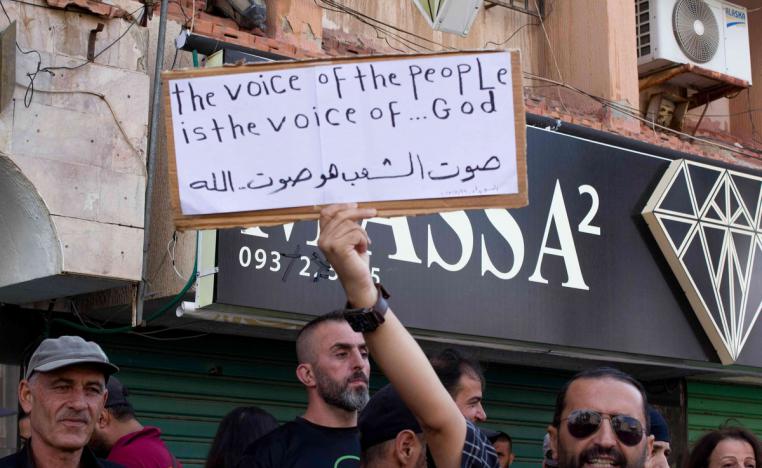 the voice of the people
is the voice of...God
صوت الشعب هو صوت.. الله
MASSA²
093
ALASKA